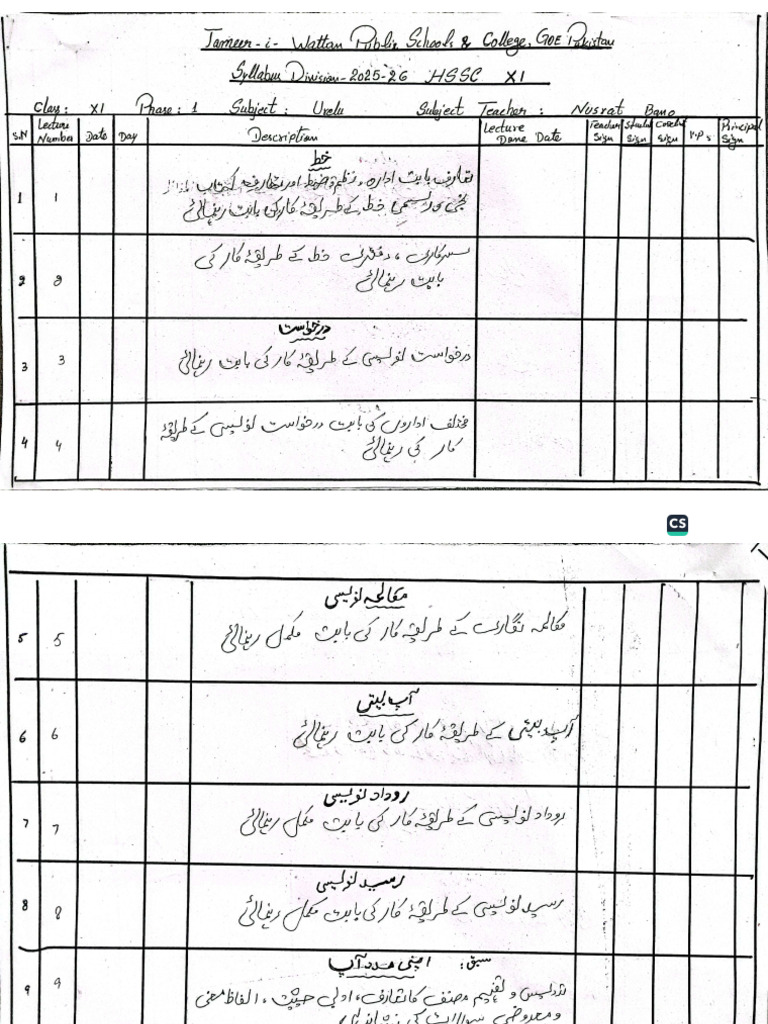 Tameer-i- Wattan Public Schools & College, GOE Pakistan
Syllabus Division-2025-26 HSSC XI
Class: XI Phase: 1 Subject: Urdu Subject Teacher: Nusrat Bano
S.N Lecture Number Date Day Description Lecture Done Date Teacher Sign Student Sign Sign V.P.s Principal Sign
خط
1 1 تعارف بابت ادارہ، نظم و ضبط اور تعارف کتاب
خط کے طریقۂ کار کی بابت رہنمائی
2 2 سرکاری، دفتری خط کے طریقۂ کار کی
بابت رہنمائی
درخواست
3 3 درخواست نویسی کے طریقۂ کار کی بابت رہنمائی
4 4 مختلف اداروں کی بابت درخواست نویسی کے طریقۂ
کار کی رہنمائی
CS
مکالمہ نویسی
5 5 مکالمہ نگاری کے طریقہ کار کی بابت مکمل رہنمائی
آپ بیتی
6 6 آپ بیتی کے طریقۂ کار کی بابت رہنمائی
روداد نویسی
7 7 روداد نویسی کے طریقۂ کار کی بابت مکمل رہنمائی
رسید نویسی
8 8 رسید نویسی کے طریقۂ کار کی بابت مکمل رہنمائی
سبق: اپنی مدد آپ
9 9 تدریس و تفہیم مصنف کا تعارف، ادبی حیثیت، الفاظ معنی
و معروضی سوالات کی